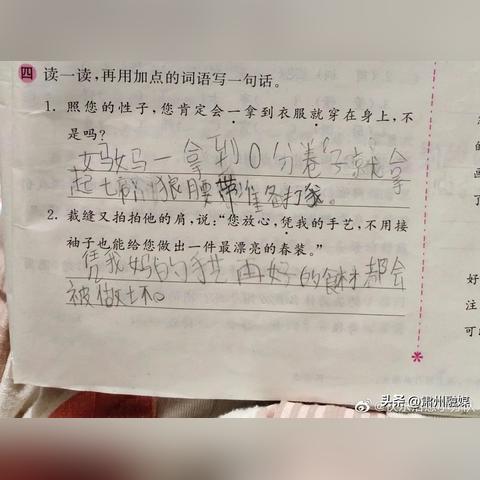 四 读一读,再用加点的词语写一句话。
1. 照您的性子,您肯定会一拿到衣服就穿在身上,不
是吗?
妈妈一拿到0分卷子就拿
起七匹狼腰带准备打我。
2. 裁缝又拍拍他的肩,说:“您放心,凭我的手艺,不用接
袖子也能给您做出一件最漂亮的春装。”
凭我妈的手艺再好的食材都会
被做坏。
的
画
了
好
注
可
头条 @肃州融媒